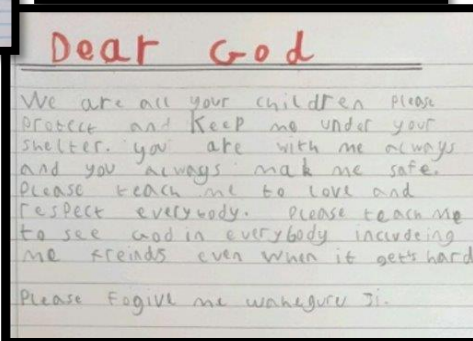 Dear God
We are all your children Please
Protect and Keep me under your
shelter. you are with me always
and you always mak me safe.
Please teach me to love and
respect everybody. Please teach me
to see God in everybody includeing
me freinds even when it get's hard
Please Fogive me waheguru Ji.